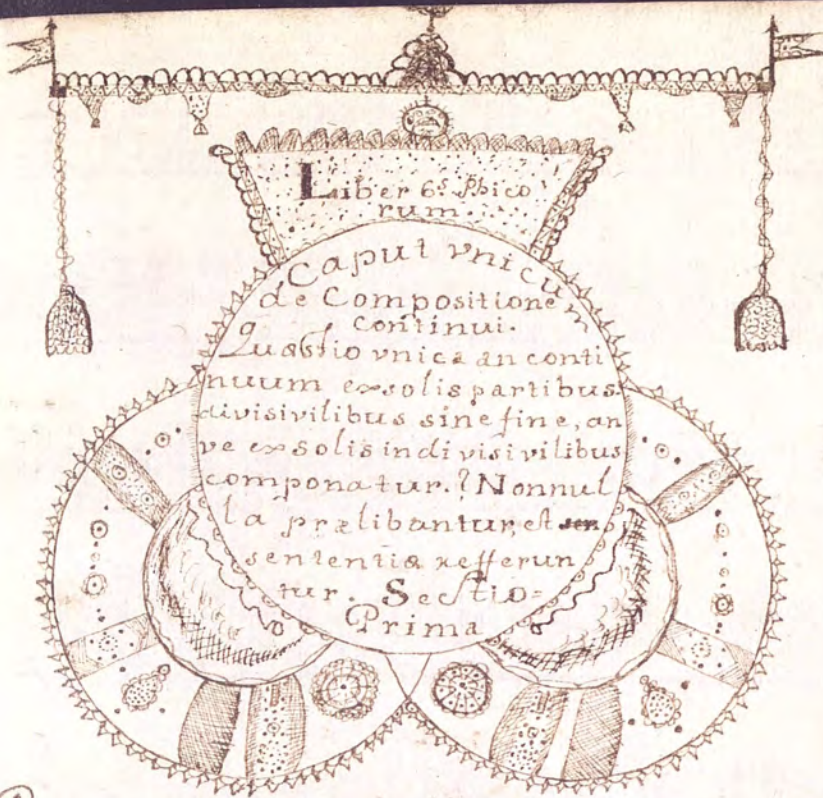 Liber 6.s Phico
rum.
Caput vnicum
de Compositione
continui.
Quæstio vnica an conti
nuum ex solis partibus
divisivilibus sine fine, an
ve ex solis indivisivilibus
componatur.? Nonnul
la prælibantur, et
sententiæ refferun
tur. Sectio=
Prima